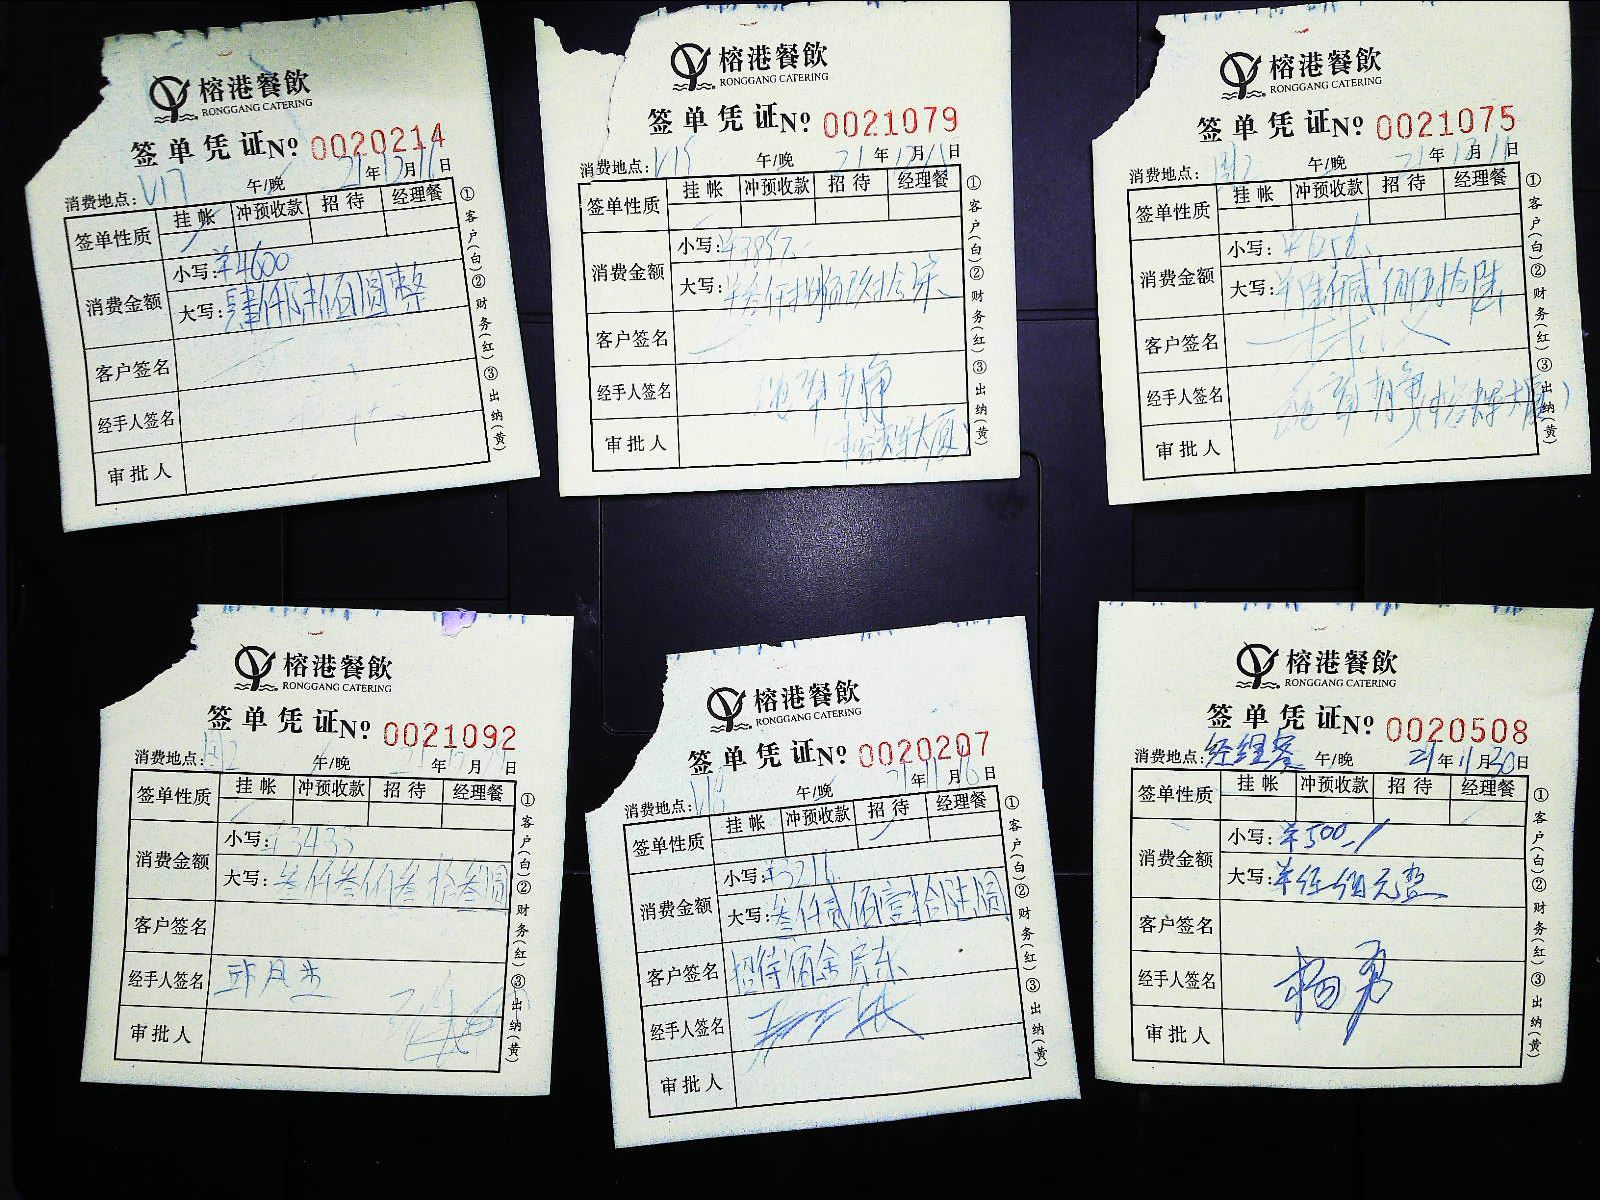 榕港餐飲
RONGGANG CATERING
签单凭证№ 0020214
消费地点: V17 午/晚 21年12月11日
签单性质 挂帐 冲预收款 招待 经理餐
消费金额 小写: ¥4600
大写: 肆仟陆佰圆整
客户签名
经手人签名
审批人
①客户(白)②财务(红)③出纳(黄)
榕港餐飲
RONGGANG CATERING
签单凭证№ 0021079
消费地点: V15 午/晚 21年12月11日
签单性质 挂帐 冲预收款 招待 经理餐
消费金额 小写:
大写:
客户签名
经手人签名
审批人
①客户(白)②财务(红)③出纳(黄)
榕港餐飲
RONGGANG CATERING
签单凭证№ 0021075
消费地点: 午/晚 21年12月11日
签单性质 挂帐 冲预收款 招待 经理餐
消费金额 小写:
大写:
客户签名
经手人签名
审批人
①客户(白)②财务(红)③出纳(黄)
榕港餐飲
RONGGANG CATERING
签单凭证№ 0021092
消费地点: 午/晚 年 月 日
签单性质 挂帐 冲预收款 招待 经理餐
消费金额 小写: ¥3433
大写: 叁仟叁佰叁拾叁圆
客户签名
经手人签名 邱凤杰
审批人
①客户(白)②财务(红)③出纳(黄)
榕港餐飲
RONGGANG CATERING
签单凭证№ 0020207
消费地点: 午/晚 21年11月6日
签单性质 挂帐 冲预收款 招待 经理餐
消费金额 小写: ¥3216
大写: 叁仟贰佰壹拾陆圆
客户签名 招待佰金房东
经手人签名
审批人
①客户(白)②财务(红)③出纳(黄)
榕港餐飲
RONGGANG CATERING
签单凭证№ 0020508
消费地点: 经理餐 午/晚 21年11月30日
签单性质 挂帐 冲预收款 招待 经理餐
消费金额 小写: ¥500
大写: ¥伍佰元整
客户签名
经手人签名 杨勇
审批人
①客户(白)②财务(红)③出纳(黄)